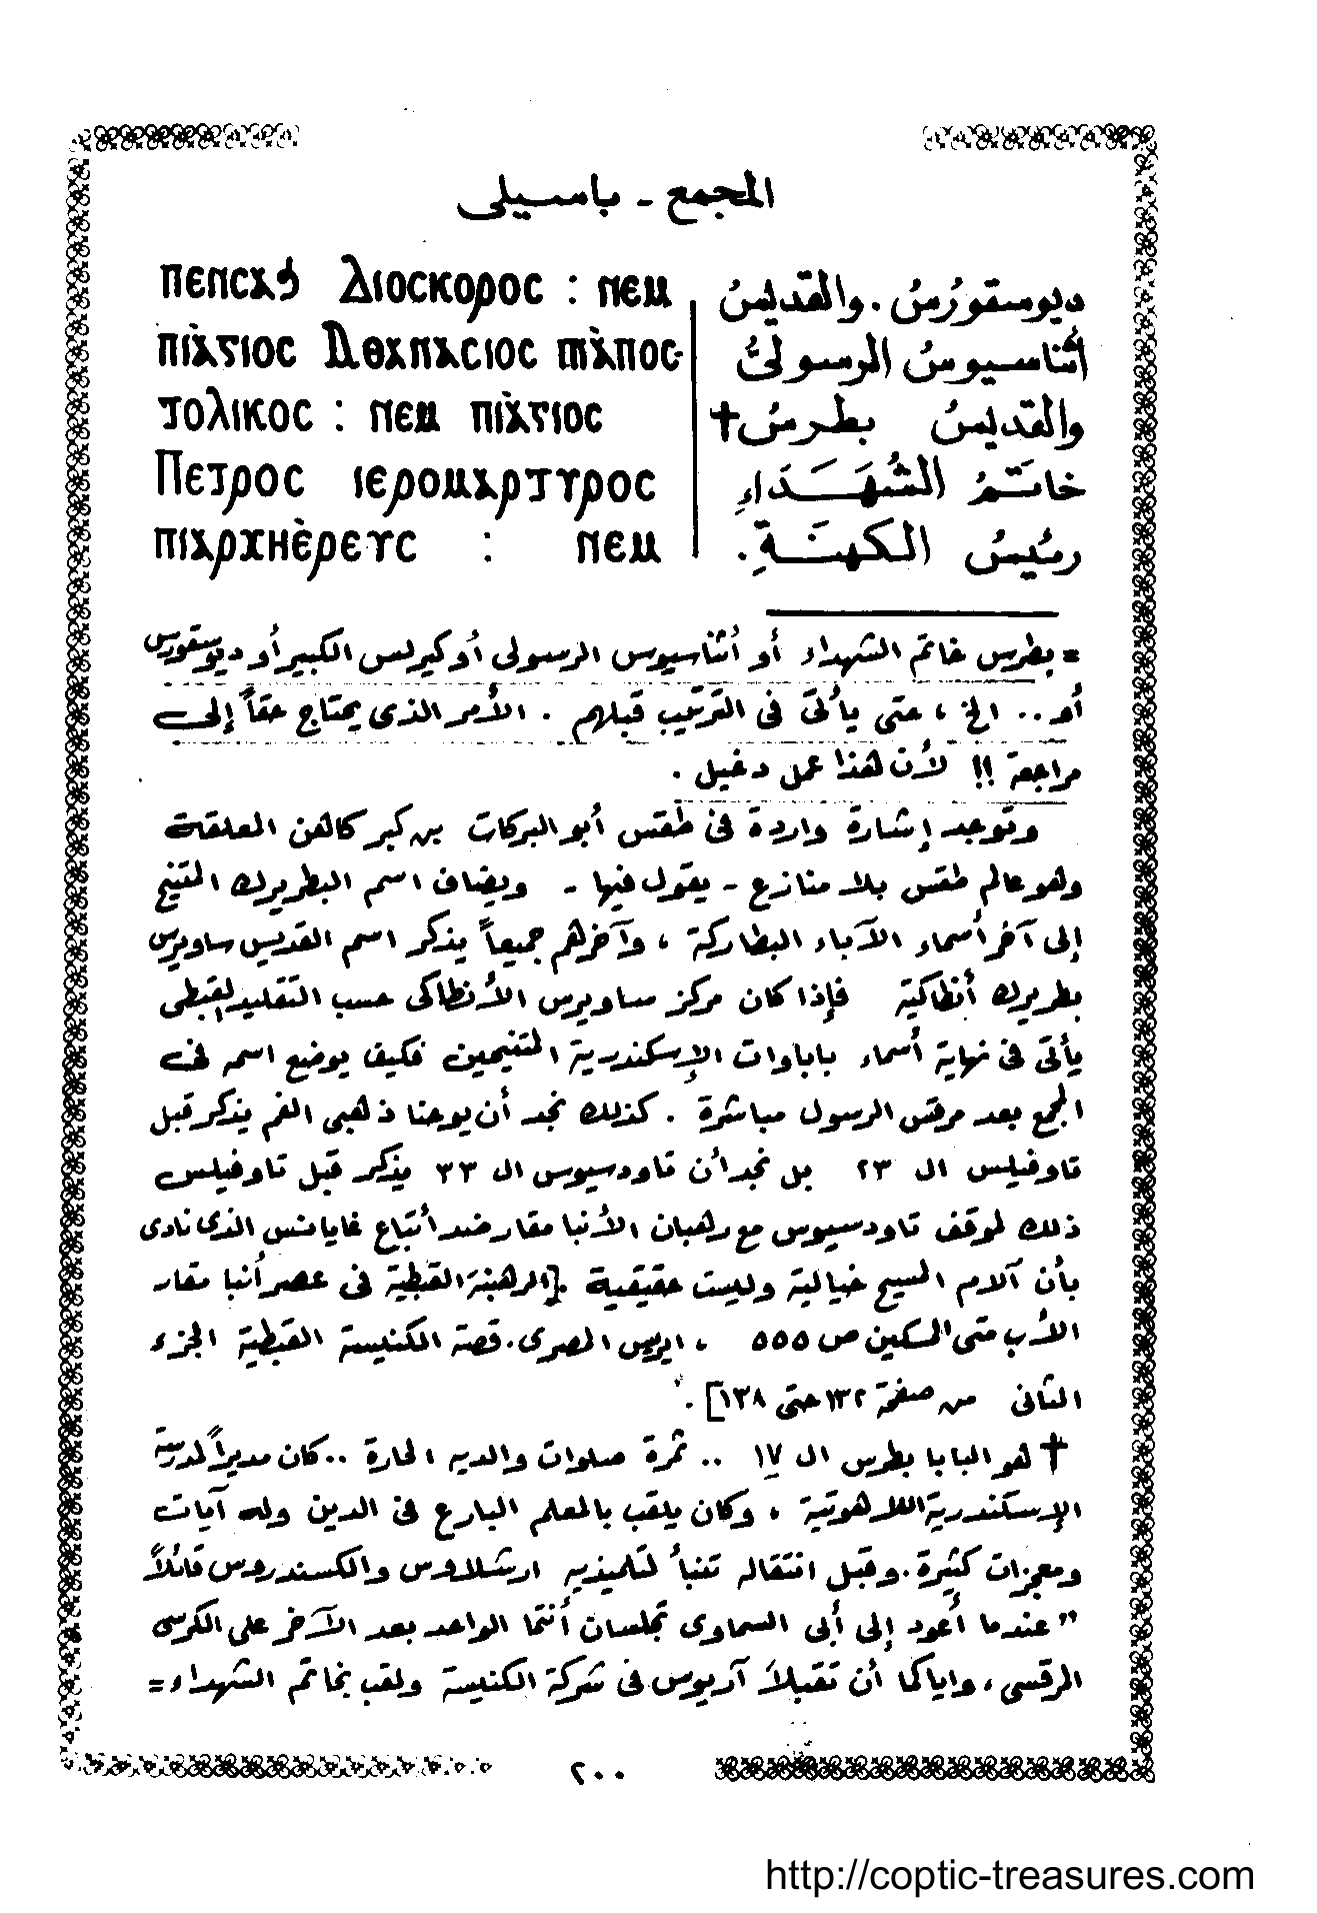 المجمع - باسيلى
ⲡⲉⲛⲥⲁϧ Ⲇⲓⲟⲥⲕⲟⲣⲟⲥ : ⲛⲉⲙ
ⲡⲓ̀ⲁⲅⲓⲟⲥ Ⲁⲑⲁⲛⲁⲥⲓⲟⲥ ⲡⲓ̀ⲁⲡⲟⲥ-
ⲧⲟⲗⲓⲕⲟⲥ : ⲛⲉⲙ ⲡⲓ̀ⲁⲅⲓⲟⲥ
Ⲡⲉⲧⲣⲟⲥ ⲓⲉⲣⲟⲙⲁⲣⲧⲩⲣⲟⲥ
ⲡⲓⲁⲣⲭⲏⲉ̀ⲣⲉⲩⲥ : ⲛⲉⲙ
ديوسقورُسُ . والقديسُ
أثناسيوسُ الرسولىُّ
والقديسُ بطرسُ †
خاتمُ الشُهَدَاءِ
رئيسُ الكهنَةِ .
= بطرس خاتم الشهداء أو أثناسيوس الرسولى أو كيرلس الكبير أو ديوسقورس
أو .. الخ ، حتى يأتى فى الترتيب قبلهم . الأمر الذى يحتاج حقاً إلى
مراجعة !! لأن هذا عمل دخيل .
وتوجد إشارة واردة فى طقس أبو البركات بن كبر كاهن المعلقة
وهو عالم طقس بلا منازع - يقول فيها - ويضاف اسم البطريرك المتنيح
إلى آخر أسماء الآباء البطاركة ، وآخرهم جميعاً يذكر اسم القديس ساويرس
بطريرك أنطاكية فإذا كان مركز ساويرس الأنطاكى حسب التقليد القبطى
يأتى فى نهاية أسماء باباوات الإسكندرية المتنيحين فكيف يوضع اسمه فى
المجمع بعد مرقس الرسول مباشرة . كذلك نجد أن يوحنا ذهبى الفم يذكر قبل
تاوفيلس ال ٢٣ بل نجد أن تاودسيوس ال ٣٣ يذكر قبل تاوفيلس
ذلك لموقف تاودسيوس مع رهبان الأنبا مقار ضد أتباع غايانس الذى نادى
بأن آلام المسيح خيالية وليست حقيقية . [الرهبنة القبطية فى عصر أنبا مقار
الأب متى المسكين ص ٥٥٥ ، ايريس المصرى . قصة الكنيسة القبطية الجزء
الثانى من صفحة ١٣٢ حتى ١٣٨] .
† هو البابا بطرس ال ١٧ .. ثمرة صلوات والديه الحارة .. كان مديراً لمدرسة
الإسكندرية اللاهوتية ، وكان يلقب بالمعلم البارع فى الدين وله آيات
ومعجزات كثيرة . وقبل انتقاله تنبأ لتلميذيه ارشلاوس والكسندروس قائلاً
" عندما أعود إلى أبى السماوى تجلسان أنتما الواحد بعد الآخر على الكرسى
المرقسى ، واياكما أن تقبلا آريوس فى شركة الكنيسة ولقب بخاتم الشهداء =
٢٠٠
http://coptic-treasures.com